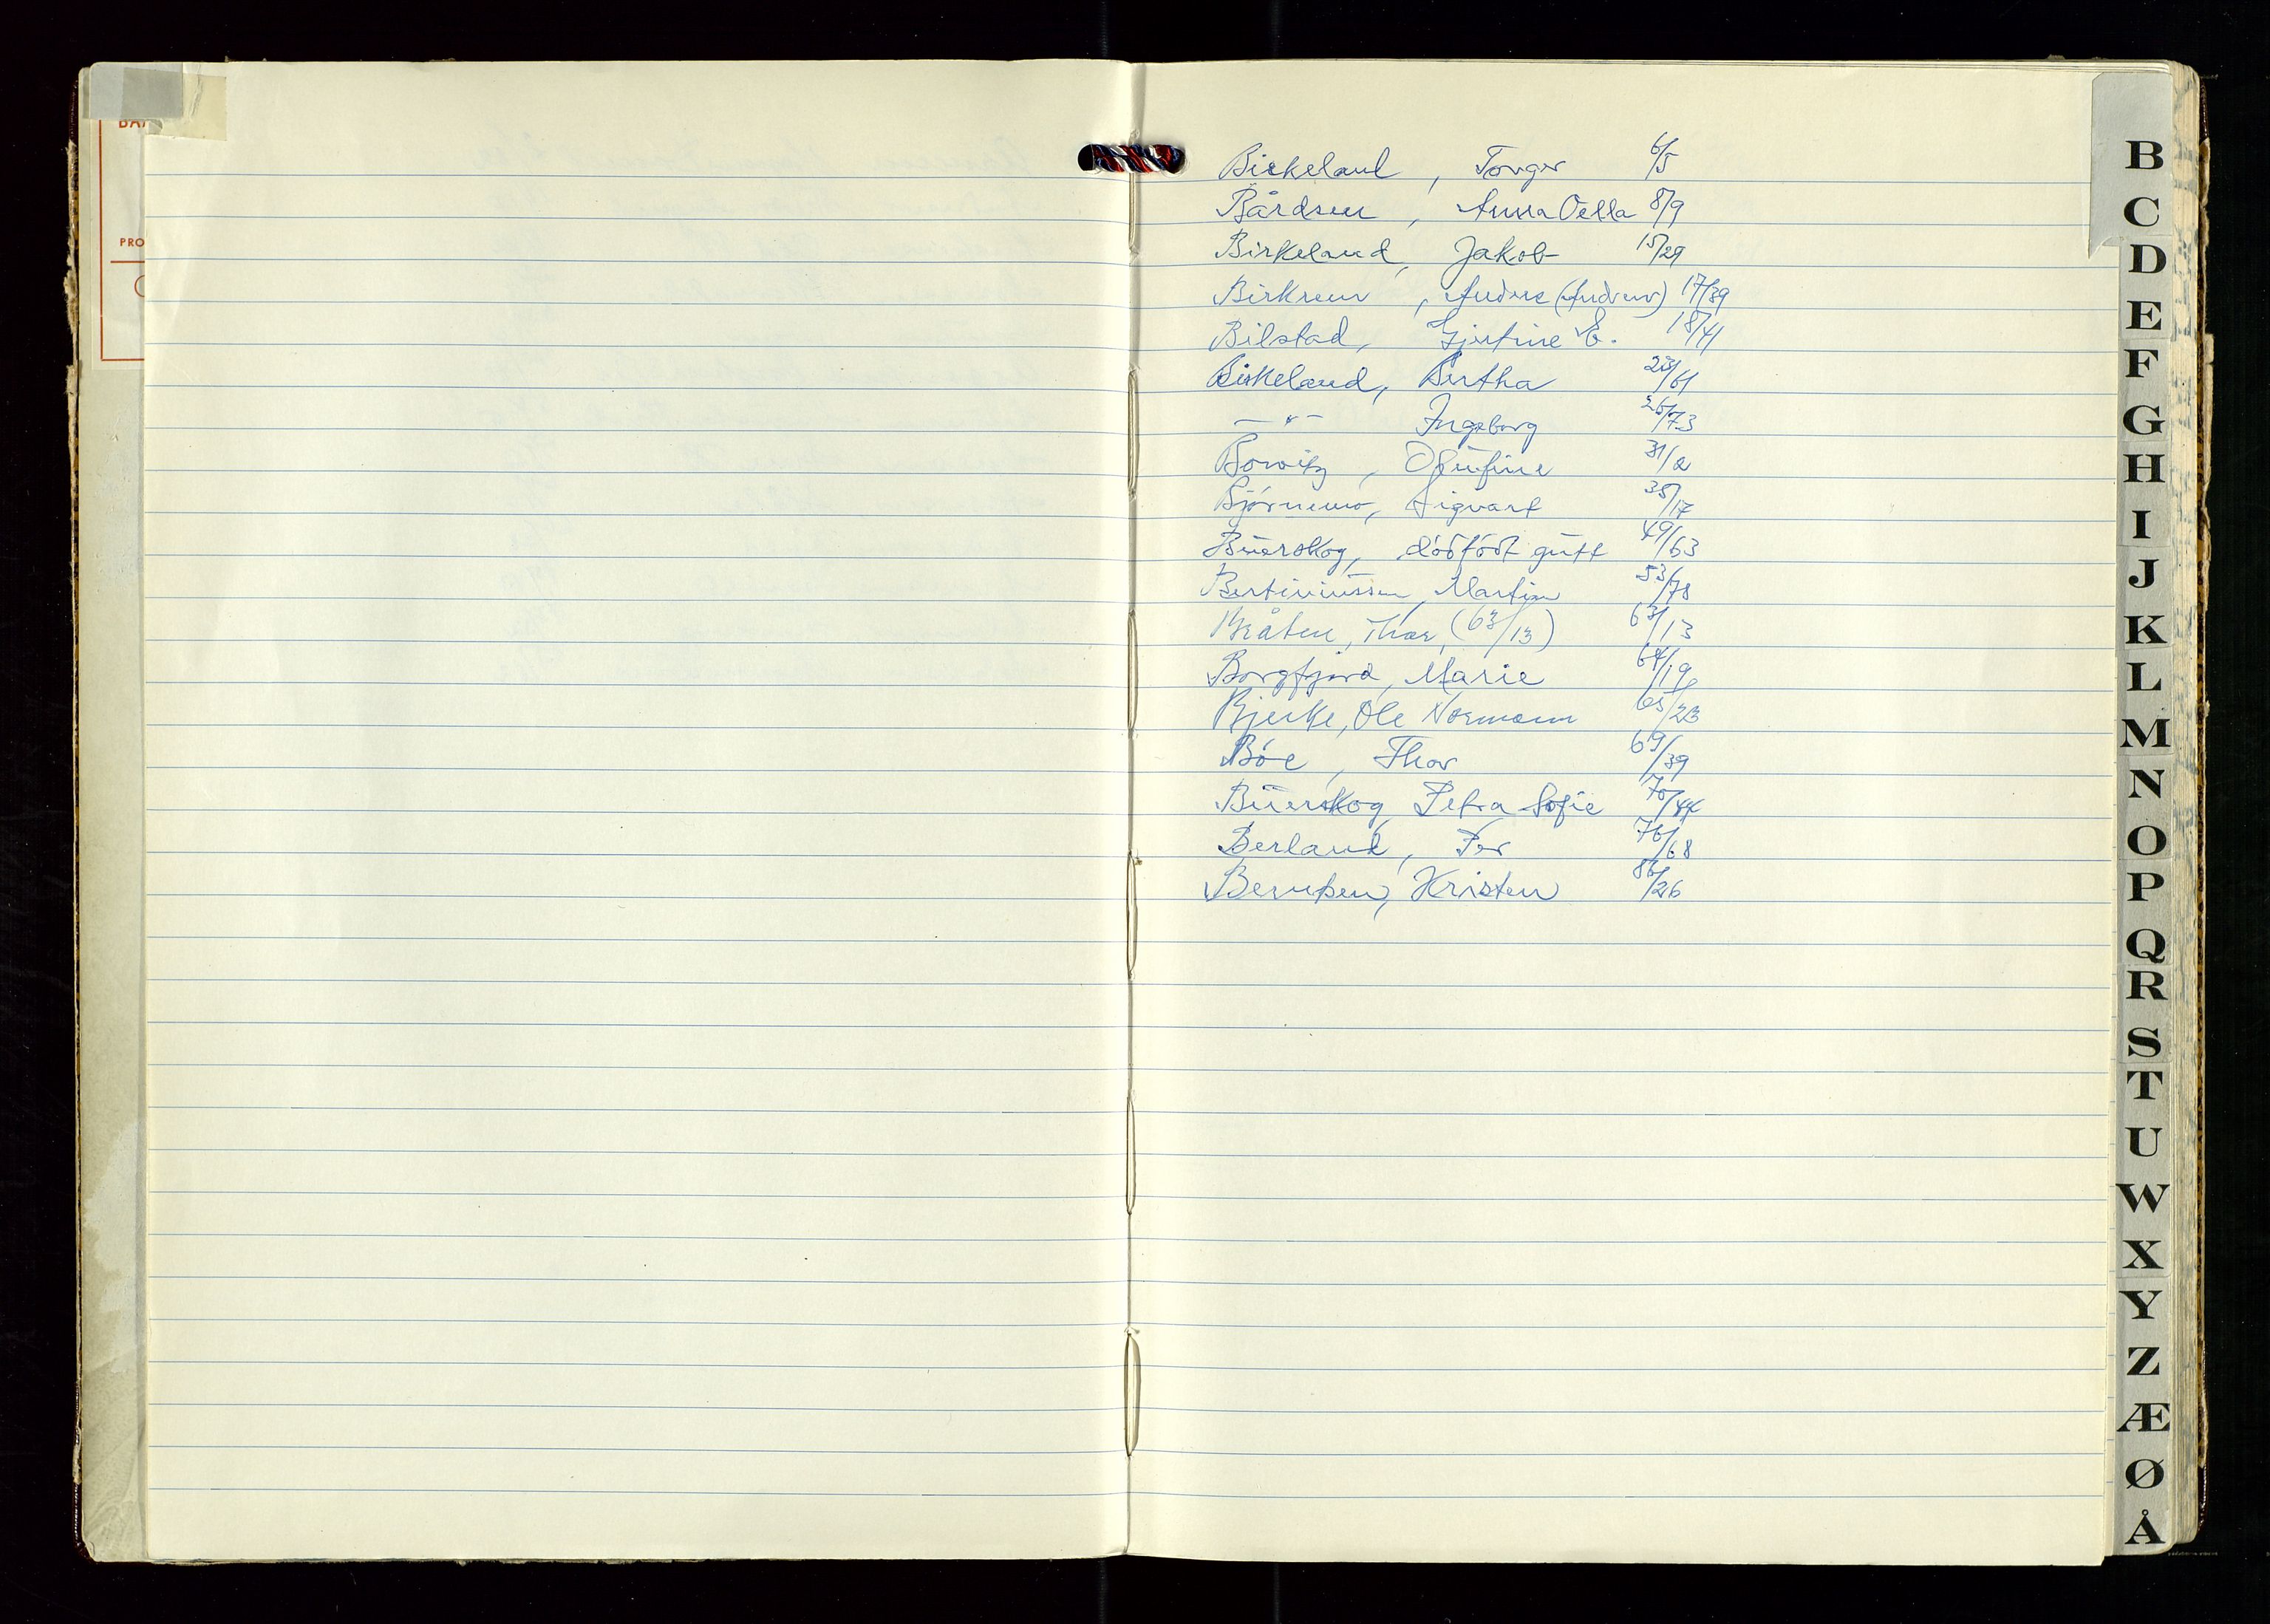 BA
PRO
Birkeland, Torger 6/5
Bårdsen, Anna Oella 8/9
Birkeland, Jakob 15/29
Birkrem, Anders (Andrew) 17/39
Bilstad, Gjertine E. 18/41
Birkeland, Bertha 23/61
—"— Ingeborg 26/73
Bowitz, 31/2
Bjørnemo, Sigvart 35/17
Buerskog, dödfödt gutt 49/63
Bertiniussen, Martin 53/78
Bråten, Thor, (63/13) 63/13
Borgfjord, Marie 64/19
Bjerke, Ole Normann 65/23
Bøe, Thor 69/39
Buerskog, Petra Sofie 70/44
Berland, Per 76/68
Berntsen, Kristen 86/26
B
C
D
E
F
G
H
I
J
K
L
M
N
O
P
Q
R
S
T
U
W
X
Y
Z
Æ
Ø
Å